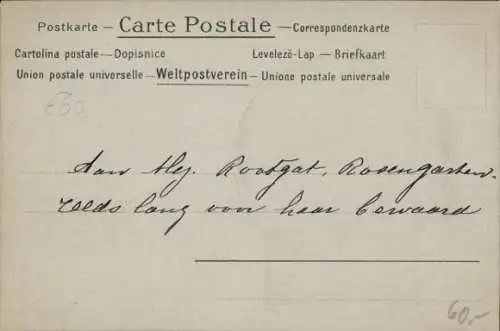 Postkarte — Carte Postale — Correspondenzkarte
Cartolina postale — Dopisnice Levelezö-Lap — Briefkaart
Union postale universelle — Weltpostverein — Unione postale universale
E60
Aan Mej. Rootgat, Rosengarten.
reeds lang voor haar bewaard
60,-